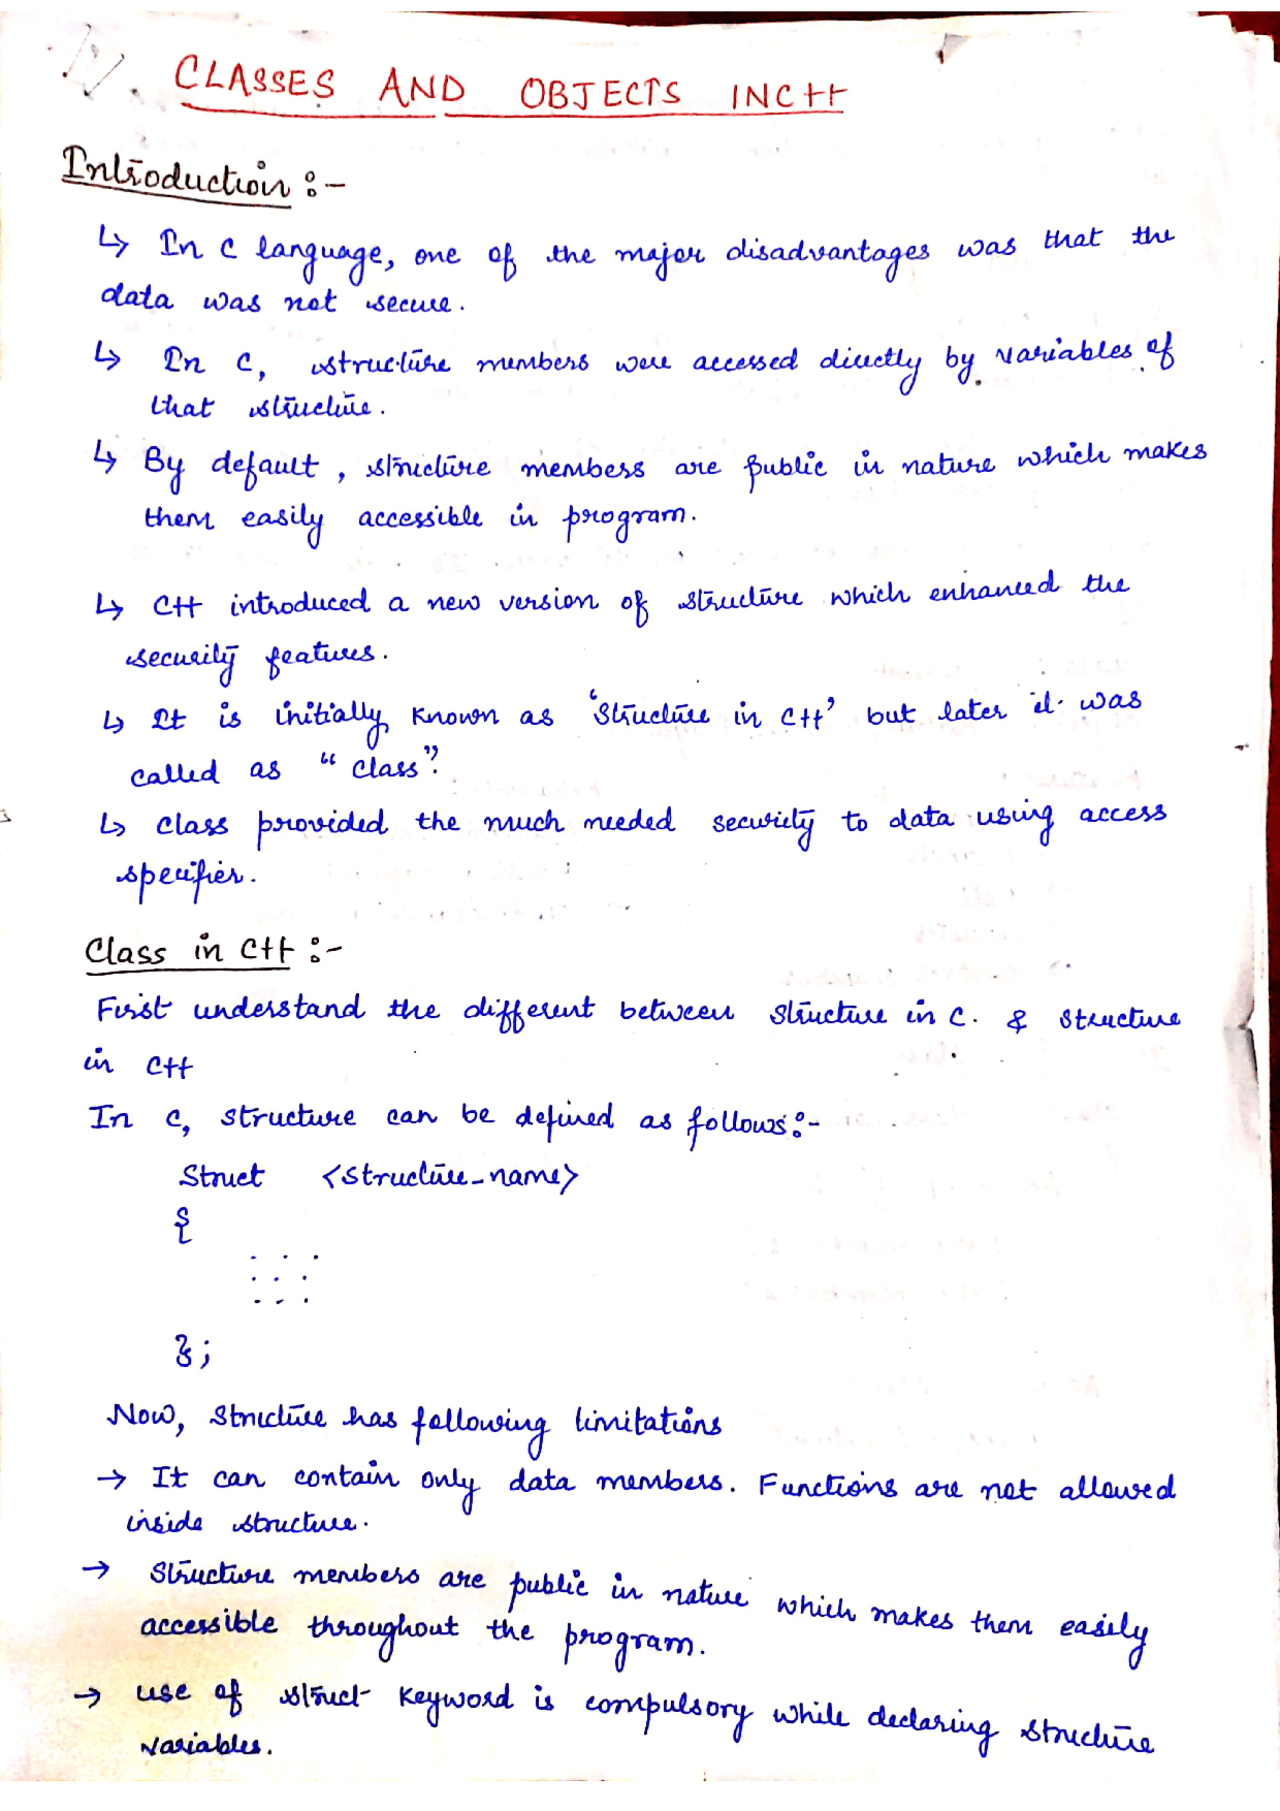 CLASSES AND OBJECTS IN C++
Introduction :-
↳ In C language, one of the major disadvantages was that the
data was not secure.
↳ In C, structure members were accessed directly by variables of
that structure.
↳ By default, structure members are public in nature which makes
them easily accessible in program.
↳ C++ introduced a new version of structure which enhanced the
security features.
↳ It is initially known as 'structure in C++' but later it was
called as "class".
↳ class provided the much needed security to data using access
specifier.
Class in C++ :-
First understand the different between structure in C. & structure
in C++
In C, structure can be defined as follows:-
Struct <structure_name>
{
. . .
. . .
. . .
};
Now, structure has following limitations
→ It can contain only data members. Functions are not allowed
inside structure.
→ Structure members are public in nature which makes them easily
accessible throughout the program.
→ use of struct keyword is compulsory while declaring structure
variables.